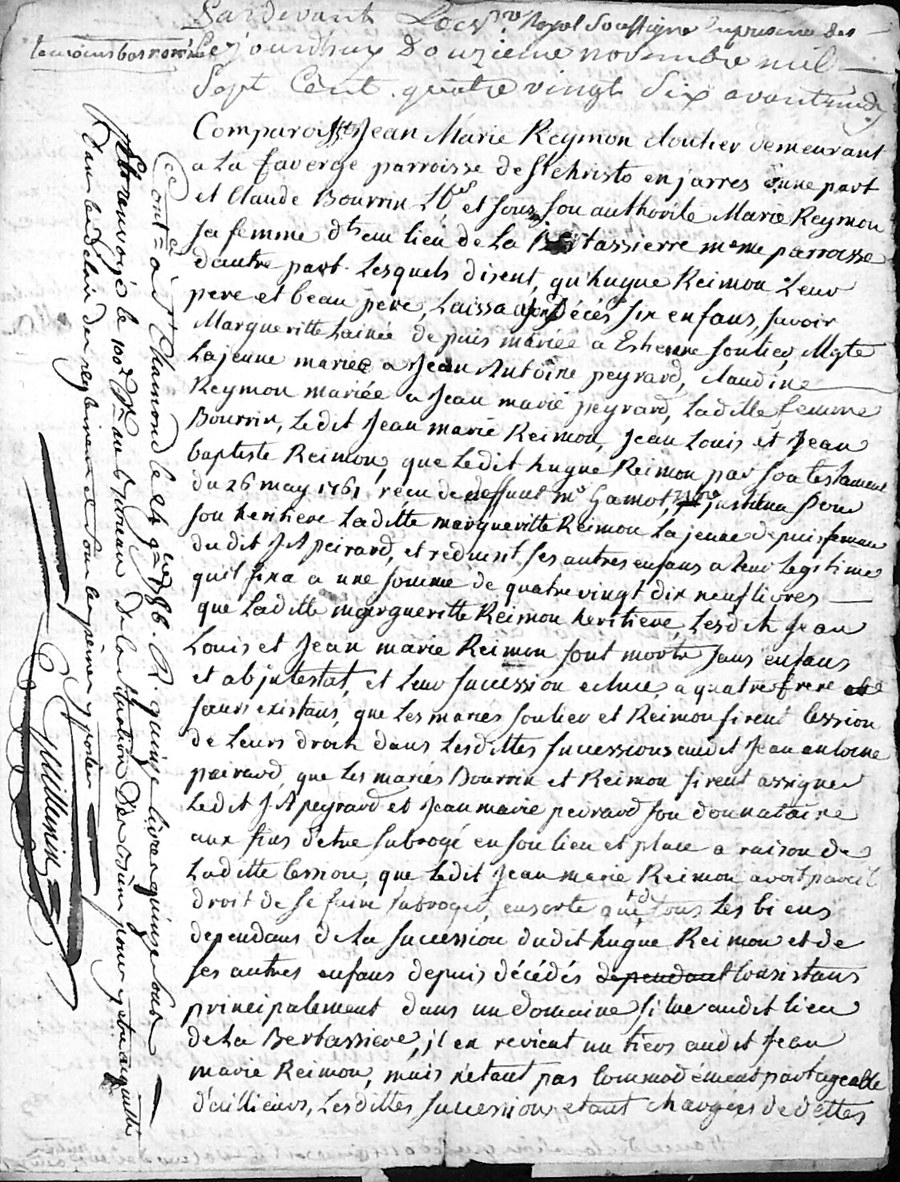 Pardevant Le Cer No.re Royal Soussigné En presence des
temoins bas només
Le jourdhuy Douzieme novembre mil
Sept Cent quatre vingt Six avant midy
Comparoissts. Jean Marie Reymon cloutier demeurant
a La faverge parroisse de St christo en jarres d'une part
et Claude Bourrin Lb.r et sous son authorité Marie Reymon
sa femme dts. au lieu de La Bertassierre meme parroisse
d'autre part. Lesquels disent, qu'hugue Reimon Leur
pere et beau pere, Laissa apres Décés six enfans, savoir
Margueritte Lainée depuis mariée a Estienne soulier, Mgte
La jeune mariée a Jean Antoine peyrard, claudine
Reymon mariée a Jean marie peyrard, Laditte femme
Bourrin, Ledit Jean marie Reimon, Jean Louis et Jean
baptiste Reimon, que Ledit hugue Reimon par son testament
du 26 may 1761 recu de deffunt Me Gamot, nore, justitua pour
son heritiere Laditte margueritte Reimon La jeune depuis femme
dudit J A peirard, et reduisit ses autres enfans a leur legitime
qu'il fixa a une somme de quatre vingt dix neuf livres
que Laditte margueritte Reimon heritiere, Lesdits Jean
Louis et Jean marie Reimon sont morts sans enfans
et abjntestat, et Leur succession echue, a quatre frere et
sœurs existans, que Les mariés soulier et Reimon firent cession
de Leurs droits dans Lesdittes successions audit Jean antoine
pairard, que Les mariés Bourrin et Reimon firent assigner
Ledit J A peyrard et Jean marie peirard son donnataire
aux fins d'etre subrogé en son lieu et place a raison de
Laditte Cession, que Ledit Jean marie Reimon avoit pareil
droit de se faire subroger, ensorte que tous Les biens
dependans de La succession dudit hugue Reimon et de
ses autres enfans depuis décédés dependant Consistans
principalement dans un domaine situé audit lieu
de La Bertassiere, il en revient un tiers audit Jean
marie Reimon, mais n'etant pas Commodément partageable
d'ailliieurs, Lesdittes successions etant chargées de dettes
a St Chamond le 24 9bre 1786. R. quinze livres quinze sols
renvoyé le 100e dr. au bureau de la situation des biens pour y etre acquitté
dans le delai du reglement sous les peines y portées
Guillemin